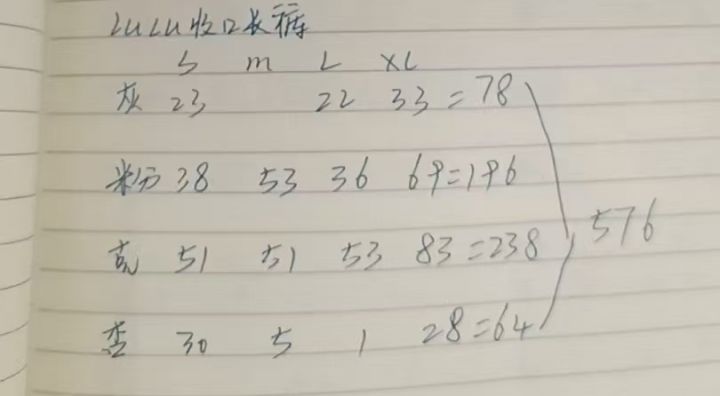 LuLu收口长裤
S m L XL
灰 23 22 33=78
米分 38 53 36 69=196
克 51 51 53 83=238
杏 30 5 1 28=64
576